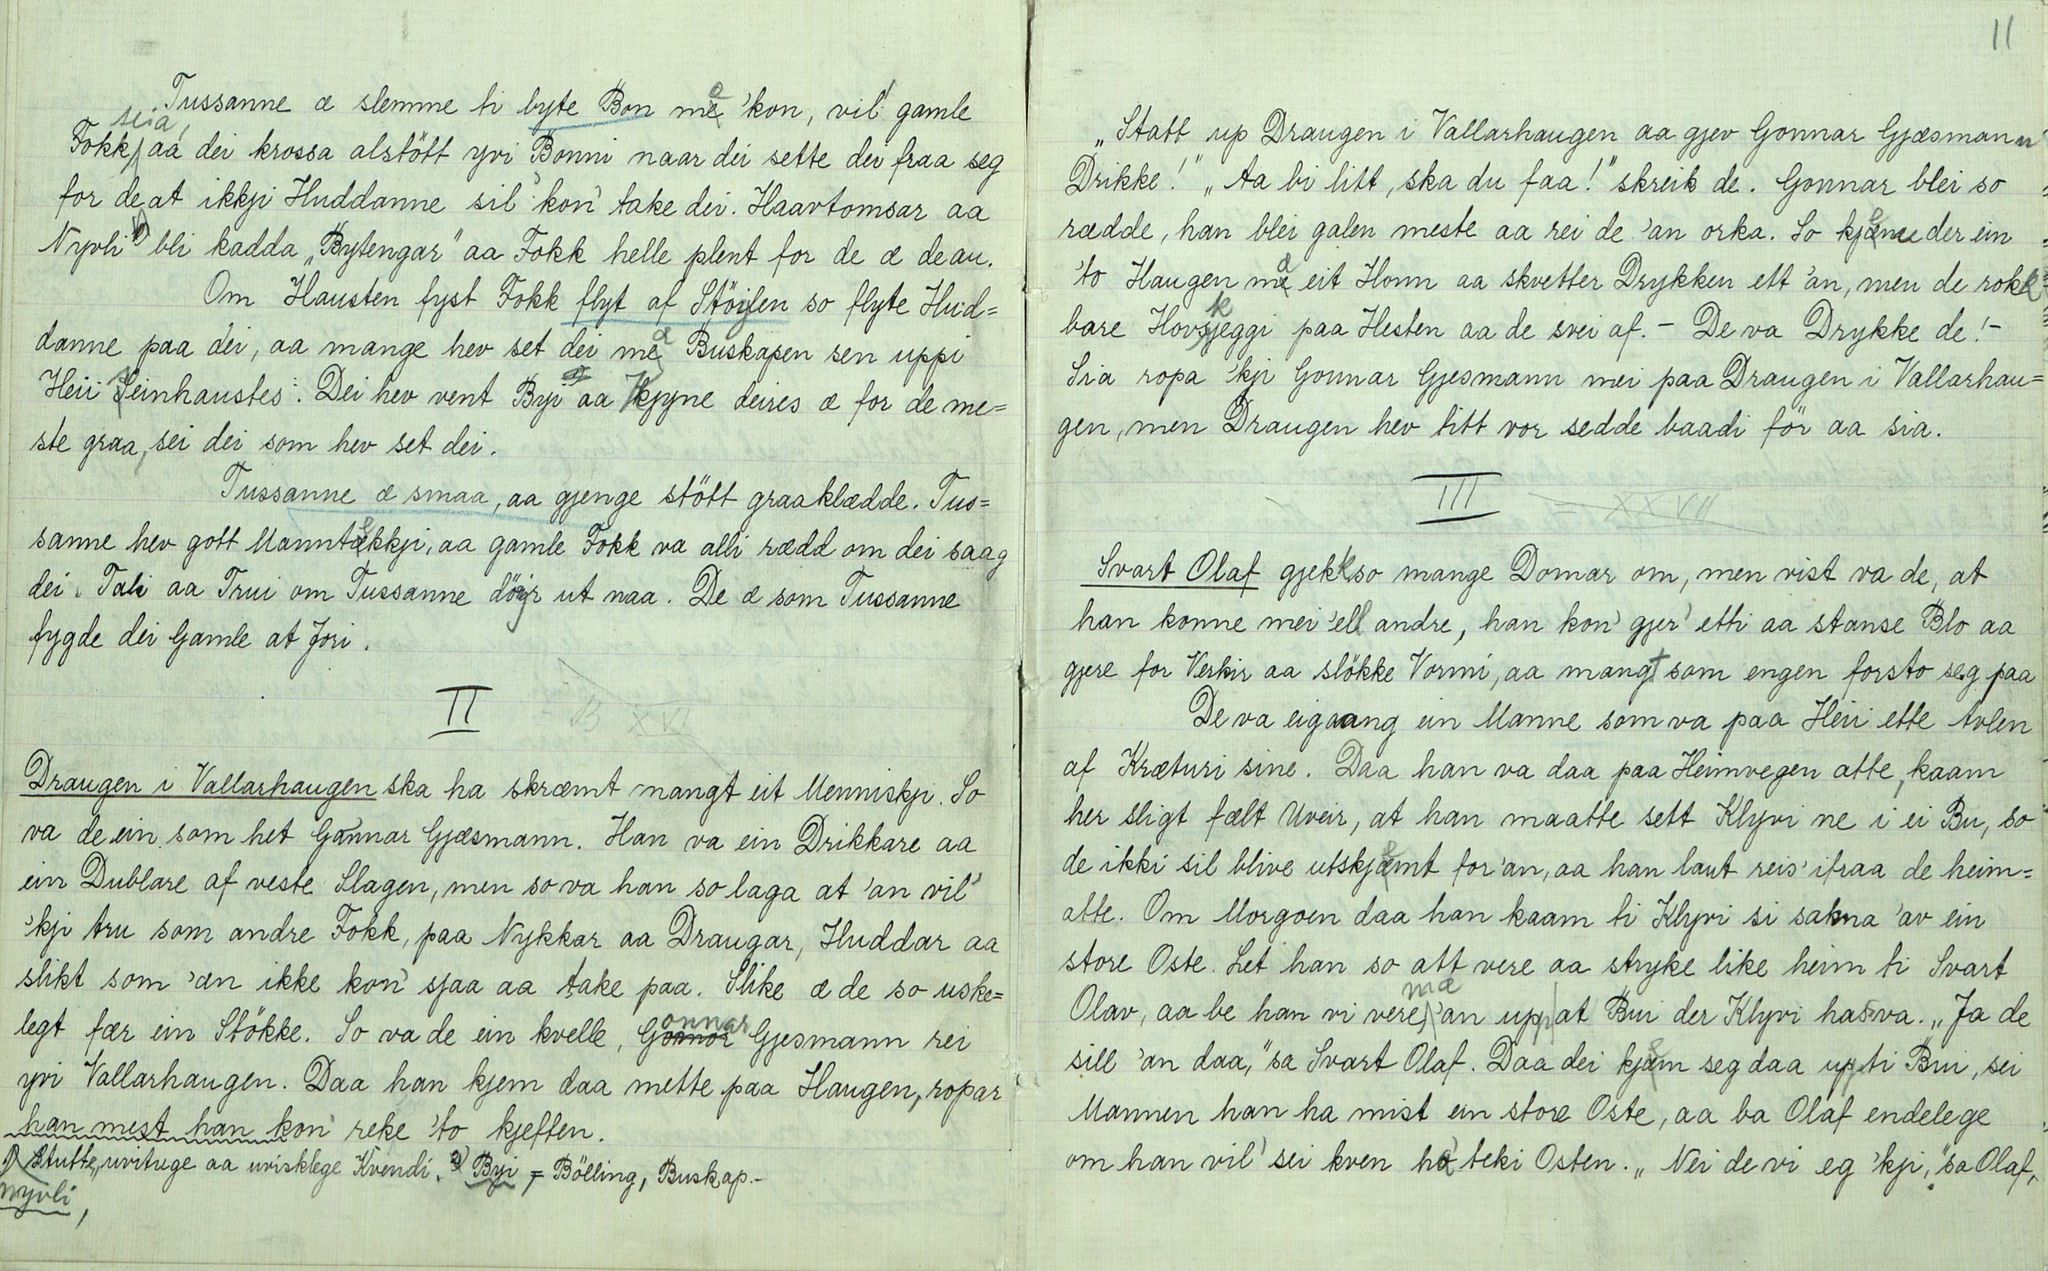 Tussanne æ slemme ti byte Bon mæ 'kon, vil' gamle
seia,
Fokk, aa dei krossa alstött yvi Bonni naar dei sette dei fraa seg
for de at ikkji Huddanne sil' kon' take dei. Haavtomsar aa
Nyvli 1) bli kadda „Bytengar" aa Fokk helle plent for de æ de au.
Om Hausten fyst Fokk flyt af Stöilen so flyte Hud=
danne paa dei, aa mange hev set dei mæ Buskapen sen uppi
Heii Seinhaustes. Dei hev vent Byi 2) aa Kjyne deires æ for de me=
ste graa, sei dei som hev set dei.
Tussanne æ smaa, aa gjenge stött graaklædde. Tus=
sanne hev gott Manntekkji, aa gamle Fokk va alli rædd om dei saag
dei. Tali aa Trui om Tussanne döyr ut naa. De æ som Tussanne
fygde dei Gamle at Jori.
II
B XVI
Draugen i Vallarhaugen ska ha skræmt mangt eit Menniskji. So
va de ein som het Gonnar Gjæsmann. Han va ein Drikkare aa
ein Dublare af veste Slagen, men so va han so laga at 'an vil'
'kji tru som andre Fokk, paa Nykkar aa Draugar, Huddar aa
slikt som 'æn ikke kon' sjaa aa take paa. Slike æ de so uske=
legt fær ein Stökke. So va de ein kvelle, Gonnar Gjesmann rei
yvi Vallarhaugen. Daa han kjem daa mette paa Haugen, ropar
han mest han kon' reke 'to kjeften.
1) Stutte, uvituge aa uvisklege Kvendi. 2) Byi = Bölling, Buskap.-
nyvli,
11
„Statt up Draugen i Vallarhaugen aa gjev Gonnar Gjæsmann
Drikke!" „Aa bi litt, ska du faa!" skreik de. Gonnar blei so
rædde, han blei galen meste aa rei de 'an orka. So kjeme der ein
'to Haugen mæ eit Honn aa skvetter Drykken ett 'an, men de rokk
bare Hovskjeggi paa Hesten aa de svei af. - De va Drykke de! -
Sia ropa 'kji Gonnar Gjesmann mei paa Draugen i Vallarhau=
gen, men Draugen hev titt vor sedde baadi för aa sia.
III
= XXVII
Svart Olaf gjekk so mange Domar om, men vist va de, at
han konne mei 'ell andre, han kon' gjer' etti aa stanse Blo aa
gjere for Verkir aa slökke Vormi, aa mangt som engen forsto seg paa
De va eigaang ein Manne som va paa Heii ette Avlen
af Kræturi sine. Daa han va daa paa Heimvegen atte, kaam
her sligt fælt Uveir, at han maatte sett Klyvi ne i ei Bu, so
de ikki sil blive utskjemt for 'an, aa han laut reis' ifraa de heim=
atte. Om Morgoen daa han kaam ti Klyvi si sakna 'av ein
store Oste. Let han so att vere aa stryke like heim ti Svart
Olav, aa be han vi vere mæ 'an upp at Bui der Klyvi hass va. „Ja de
sill 'an daa," sa Svart Olaf. Daa dei kjem seg daa upp ti Bui, sei
Mannen han ha mist ein store Oste, aa ba Olaf endelege
om han vil' sei kven ha teki Osten. „Nei de vi eg 'kji," sa Olaf,